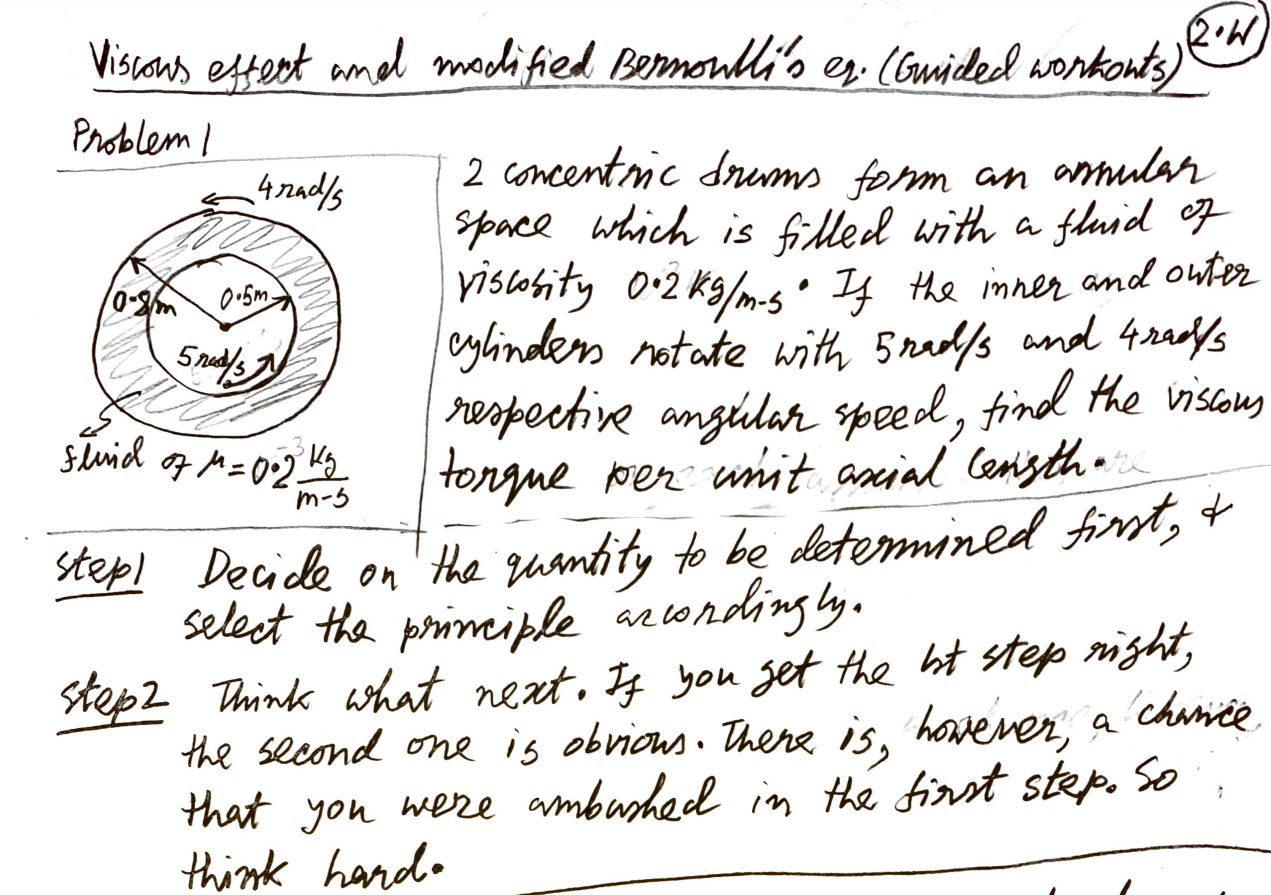 Viscous effect and modified Bernoulli's eq. (Guided workouts)
2.W
Problem 1
4 rad/s
0.8m
0.5m
5 rad/s
fluid of μ = 0.2 kg/m-s
2 concentric drums form an annular
space which is filled with a fluid of
viscosity 0.2 kg/m-s. If the inner and outer
cylinders rotate with 5 rad/s and 4 rad/s
respective angular speed, find the viscous
torque per unit axial length.
Step1 Decide on the quantity to be determined first, &
select the principle accordingly.
Step2 Think what next. If you get the 1st step right,
the second one is obvious. There is, however, a chance
that you were ambushed in the first step. So
think hard.